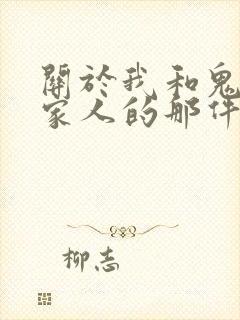 關於我和鬼
家人的那件
柳志